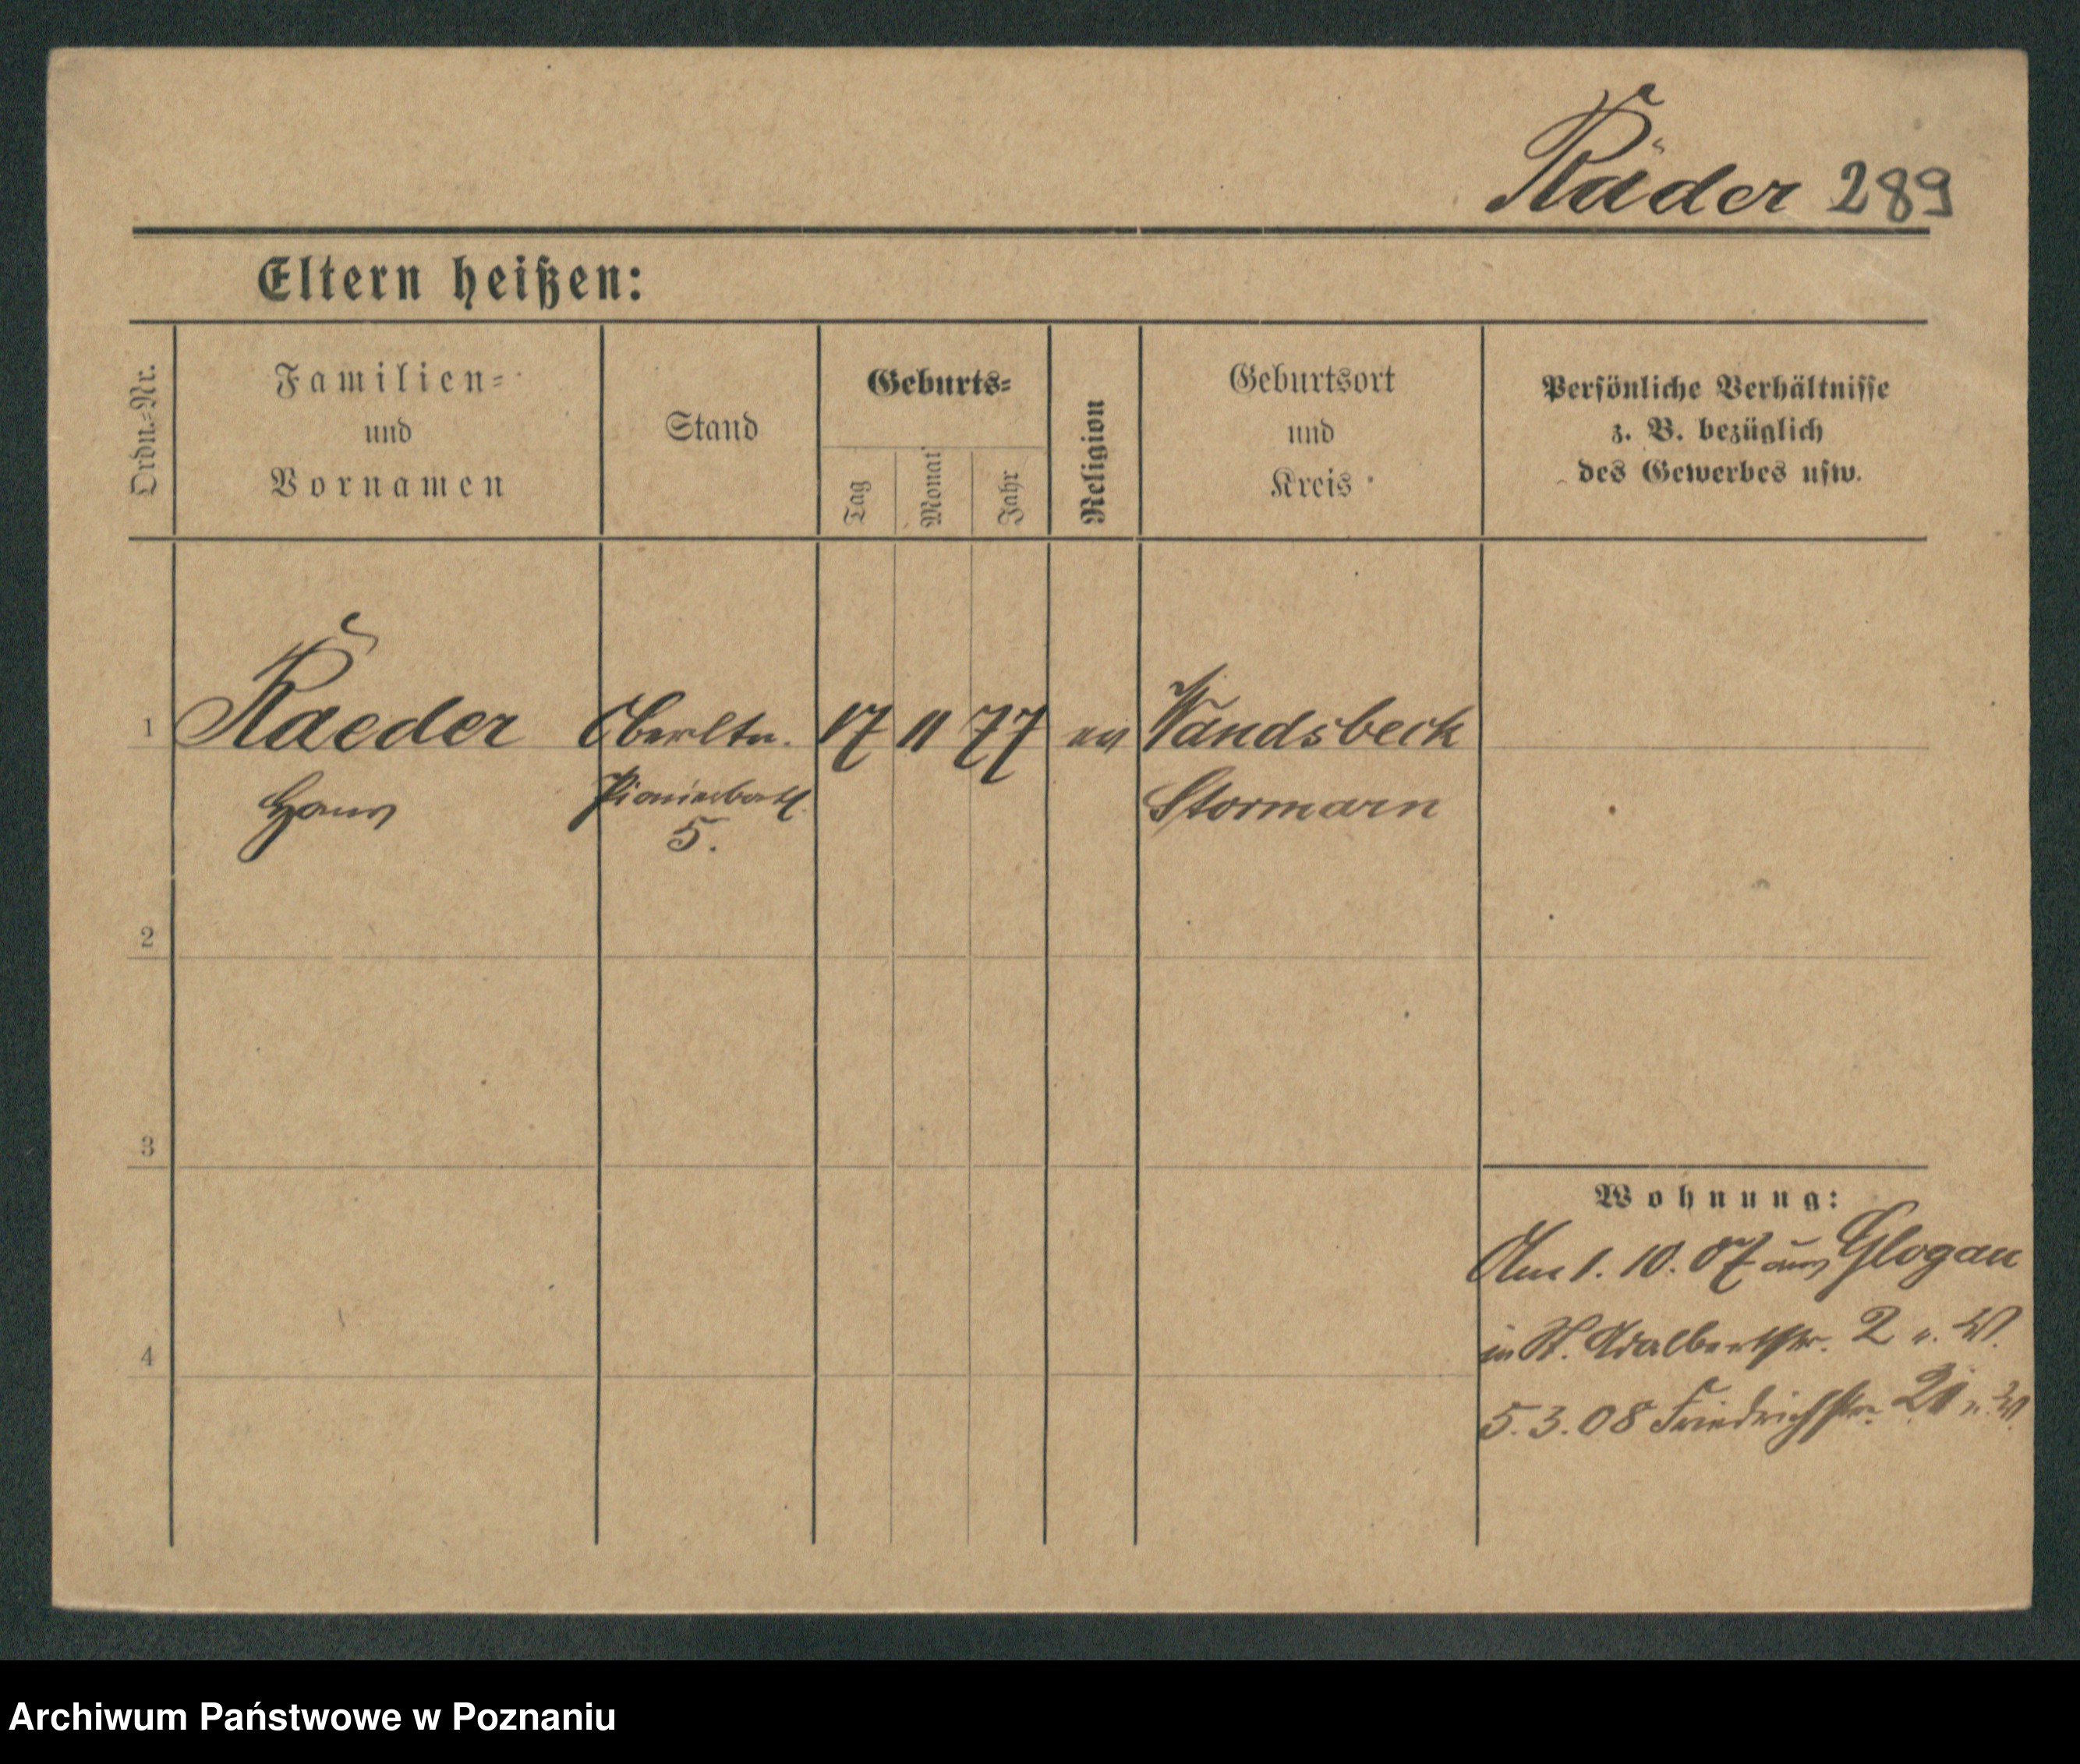 Räder 289
Eltern heißen:
Ordn.-Nr.
Familien-
und
Vornamen
Stand
Geburts-
Tag
Monat
Jahr
Religion
Geburtsort
und
Kreis
Persönliche Verhältnisse
z. B. bezüglich
des Gewerbes usw.
1 Raeder Oberltn. 17 11 77 ev Wandsbeck
Hans Pionierbatl. Stormarn
5.
2
3
4
Wohnung:
Am 1. 10. 07 aus Glogau
in St. Adalbertstr. 2 v. W.
5. 3. 08 Friedrichstr. 21 v. W.
Archiwum Państwowe w Poznaniu